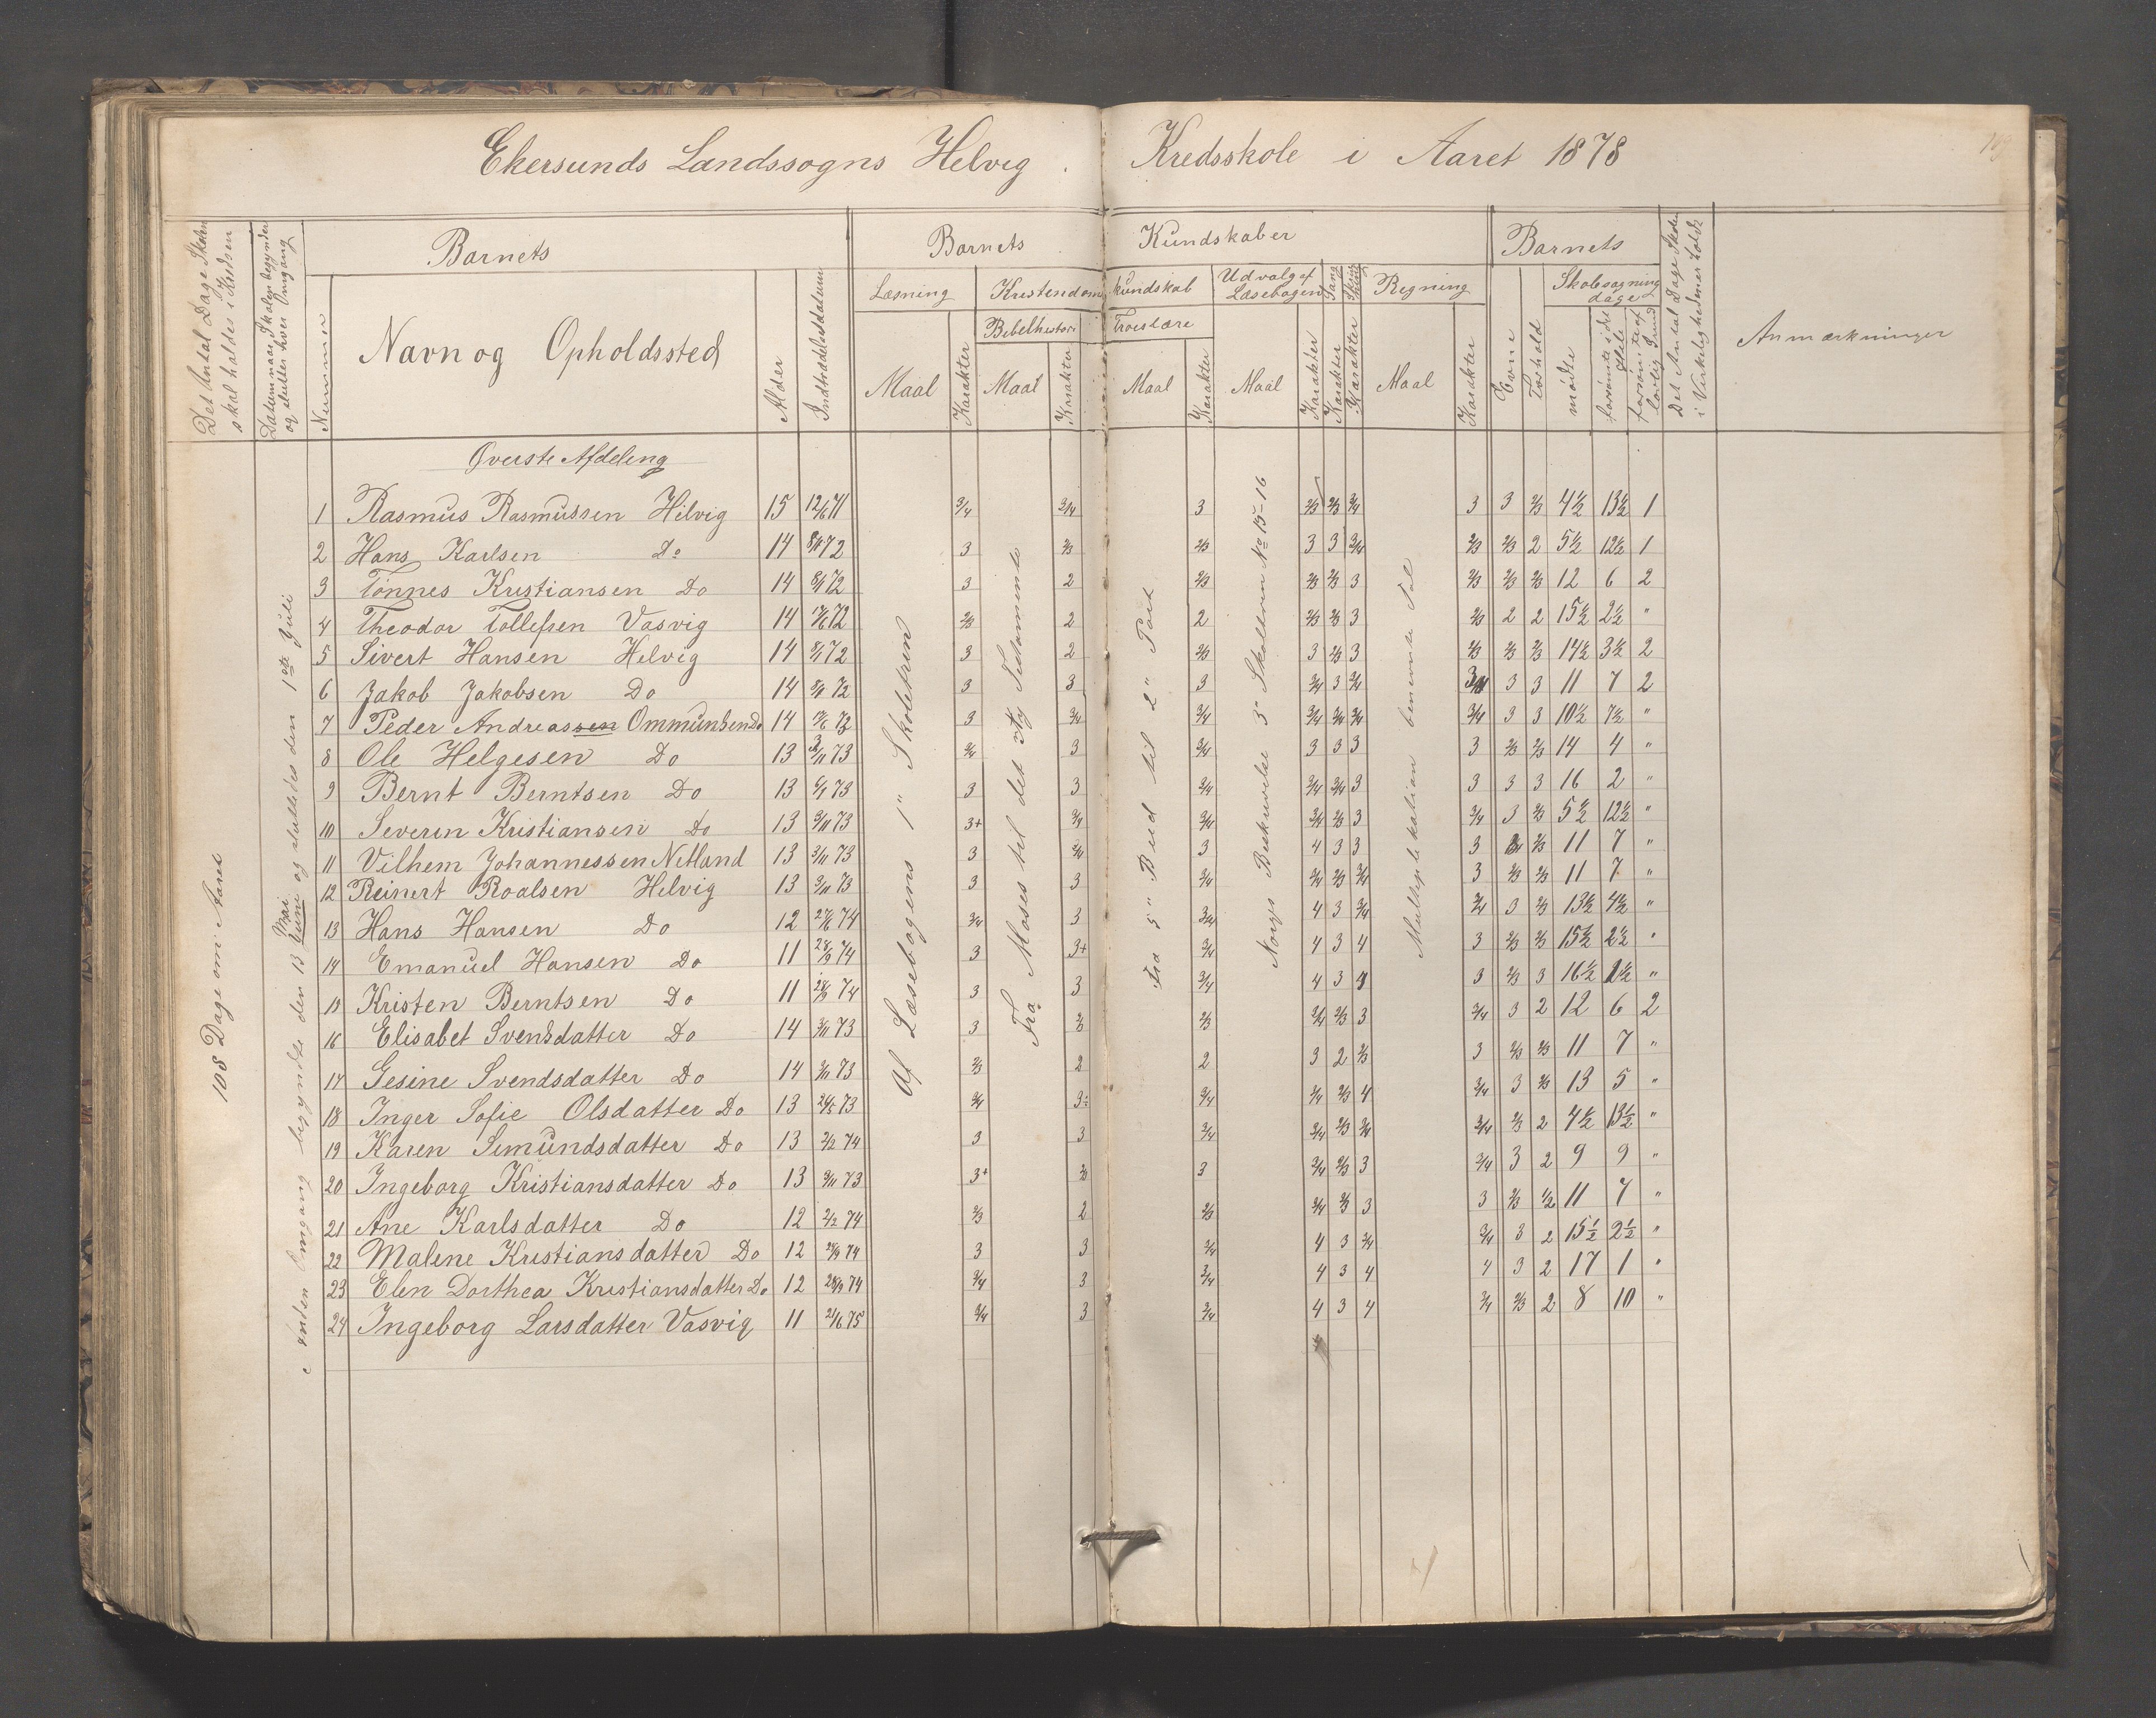 Ekersunds Landssogns Helvig Kredsskole i Aaret 1878
Det Antal Dage Skolen skal holdes i Kredsen
Datum naar Skolen begynder og slutter hver Omgang
Nummer
Barnets
Navn og Opholdssted
Alder
Indtrædelsesdatum
Barnets Kundskaber
Læsning
Maal
Karakter
Kristendomskundskab
Bibelhistorie
Maal
Karakter
Troeslære
Maal
Karakter
Udvalg af Læsebogen
Maal
Karakter
Sang
Karakter
Skrivning
Karakter
Regning
Maal
Karakter
Barnets
Evne
Forhold
Skolesøgningdage
mødte
forsømte i det Hele
forsømte af lovlig Grund
Det Antal Dage Skolen i Virkeligheden er holdt
Anmærkninger
108 Dage om Aaret
Anden Omgang begyndte den 13 Mai og sluttedes den 1ste Juli
Af Læsebogens 1" Skoletrin
Fra Moses til det ny Testamente
Fra 5" Bud til 2" Part
Norges Beskrivelse 3" Skoletrin No 15-16
Multiplikation benevnte Tal
Øverste Afdeling
1 Rasmus Rasmussen Helvig 15 12/6 71 3/4 3/4 3 2/3 2/3 3/4 3 3 2/3 4½ 13½ 1
2 Hans Karlsen Do 14 8/1 72 3 2/3 2/3 3 3 3/4 2/3 2/3 2 5½ 12½ 1
3 Tønnes Kristiansen Do 14 8/1 72 3 2 2/3 2/3 2/3 3 2/3 2/3 2/3 12 6 2
4 Theodor Tollefsen Vasvig 14 72 2/3 2 2 2/3 2/3 3 2/3 2 2 15½ 2½ "
5 Sivert Hansen Helvig 14 72 3 2 2/3 3 2/3 3 2/3 2/3 2/3 14½ 3½ 2
6 Jakob Jakobsen Do 14 8/1 72 3 3 3 3/4 3 3/4 3/4 3 3 11 7 2
7 Peder Andreassen Ommundsen Do 14 72 3 3/4 3/4 3/4 3/4 3/4 3/4 3 3 10½ 7½ "
8 Ole Helgesen Do 13 3/11 73 3/4 3 3/4 3 3 3 3 2/3 2/3 14 4 "
9 Bernt Berntsen Do 13 6/1 73 3 3 3/4 3/4 3/4 3 3 3 3 16 2 "
10 Severin Kristiansen Do 13 3/11 73 3+ 3/4 3/4 3/4 2/3 3 3/4 3 2/3 5½ 12½ "
11 Vilhem Johannessen Netland 13 3/11 73 3 3/4 3 4 3 3 3 2/3 11 7 "
12 Reinert Roalsen Helvig 13 3/11 73 3 3 3/4 3/4 2/3 3/4 3 2/3 2/3 11 7 "
13 Hans Hansen Do 12 27/6 74 3/4 3 3/4 4 3 3/4 3/4 3 2/3 13½ 4½ "
14 Emanuel Hansen Do 11 28/9 74 3 3+ 3/4 4 3 4 3 2/3 2/3 15½ 2½ "
15 Kristen Berntsen Do 11 28/9 74 3 3 3/4 4 3 4 3 2/3 3 16½ 1½ "
16 Elisabet Svendsdatter Do 14 3/11 73 3 2/3 2/3 3/4 2/3 3 3/4 3 2 12 6 2
17 Gesine Svendsdatter Do 14 3/11 73 2/3 2 2 3 2 2/3 3 2/3 2/3 11 7 "
18 Inger Sofie Olsdatter Do 13 24/5 73 3/4 3 3/4 3/4 2/3 4 3/4 3 2/3 13 5 "
19 Karen Simundsdatter Do 13 2/2 74 3 3 3/4 3/4 2/3 3/4 3/4 2/3 2 4½ 13½ "
20 Ingeborg Kristiansdatter Do 13 3/11 73 3+ 2/3 3 3/4 2/3 3 3/4 3 2 9 9 "
21 Ane Karlsdatter Do 12 2/2 74 2/3 2 2/3 3/4 2/3 3 3 2/3 ½ 11 7 "
22 Malene Kristiansdatter Do 12 28/9 74 3 3 3/4 4 3 3/4 3/4 3 2 15½ 2½ "
23 Elen Dorthea Kristiansdatter Do 12 28/9 74 3/4 3 3/4 4 3 4 4 3 2 17 1 "
24 Ingeborg Larsdatter Vasvig 11 21/6 75 3/4 3 3/4 4 3 4 3/4 2/3 2 8 10 "